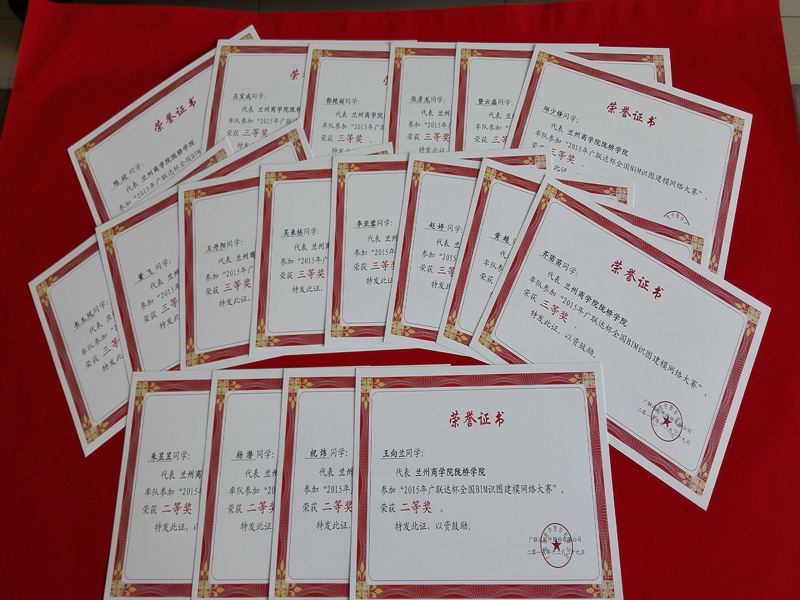 荣誉证书
陈 娅 同学:
代表 兰州商学院陇
参加 "2015年广联达杯全国BIM
荣
同学:
代表 兰州商学院陇
率队参加 "2015年广
荣获 三等奖
荣
郭艳丽同学:
代表 兰州商学
参加 "2015年
荣获 三等奖
张彦龙同学:
代表 兰州
参加 "2015
荣获 三等奖
云磊同学:
代表 兰州
参加 "2015
荣获 三等奖
荣誉证书
少锋同学:
代表 兰州商学院陇桥学院
率队参加 "2015年广联达杯全国BIM识图建模网络大赛",
荣获 三等奖 .
特发此证
同学:
代表 兰
参加 "
荣获 三等
特发此
董 飞 同学:
代表 兰
参加 "2015
荣获 三等奖
特发此证
王丹阳同学:
代表 兰州商
率队参加 "2015年广
荣获 三等奖
特发此证,
吴来栋同学:
代表 兰州商
参加 "2015年
荣获 三等奖
特发此证
李亚蓉同学:
代表 兰州
参加 "2015年
荣获 三等奖
特发此证
赵 婷 同学:
代表 兰州
率队参加 "20
荣获 三等
特发此
黄 超
代表
参加 "
荣获 三
特发
荣誉证书
齐蓓蓓同学:
代表 兰州商学院陇桥学院
率队参加 "2015年广联达杯全国BIM识图建模网络大赛",
荣获 二等奖 .
特发此证, 以资鼓励.
朱昱昱同学:
代表 兰州商
率队参加 "2015年
荣获 二等奖
特发此证, 以
杨 潜 同学:
代表 兰州
参加 "2015年
荣获 二等奖
特发此证
祝 炜 同学:
代表 兰州
参加 "2015年
荣获 二等奖
特发此证
荣誉证书
王向兰同学:
代表 兰州商学院陇桥学院
参加 "2015年广联达杯全国BIM识图建模网络大赛",
荣获 二等奖 .
特发此证, 以资鼓励.